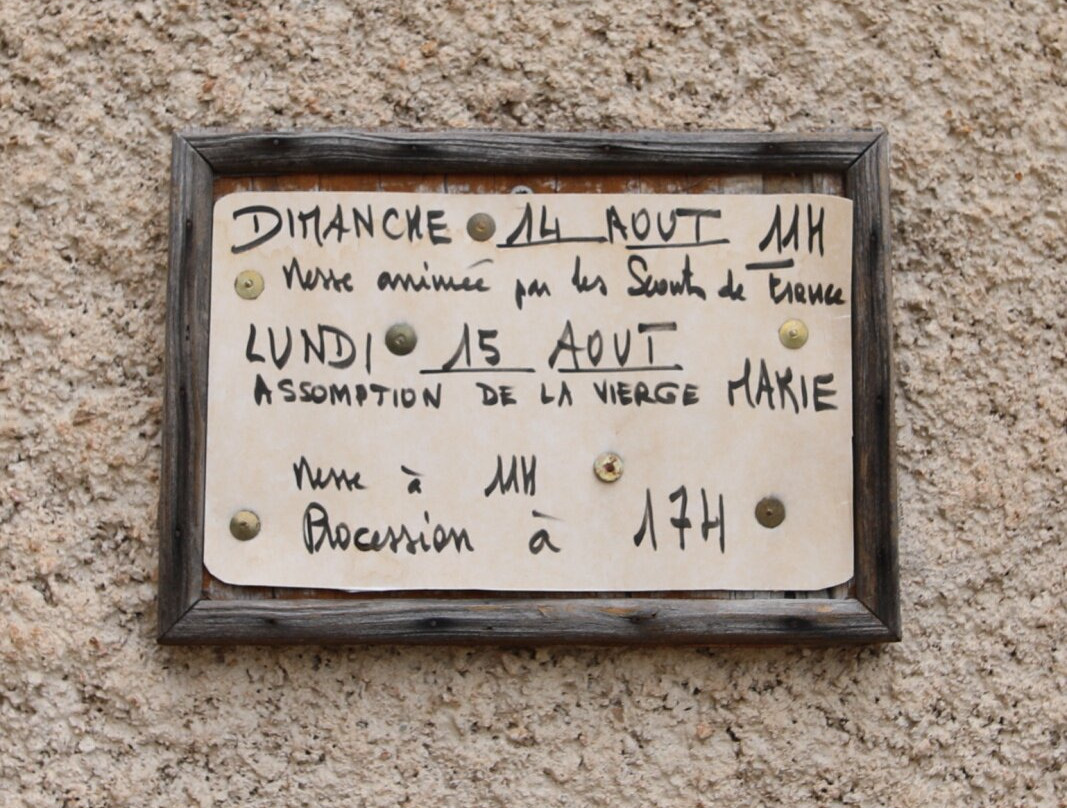 DIMANCHE 14 AOUT 11H
Messe animée par les Scouts de France
LUNDI 15 AOUT
ASSOMPTION DE LA VIERGE MARIE
Messe à 11H
Procession à 17H